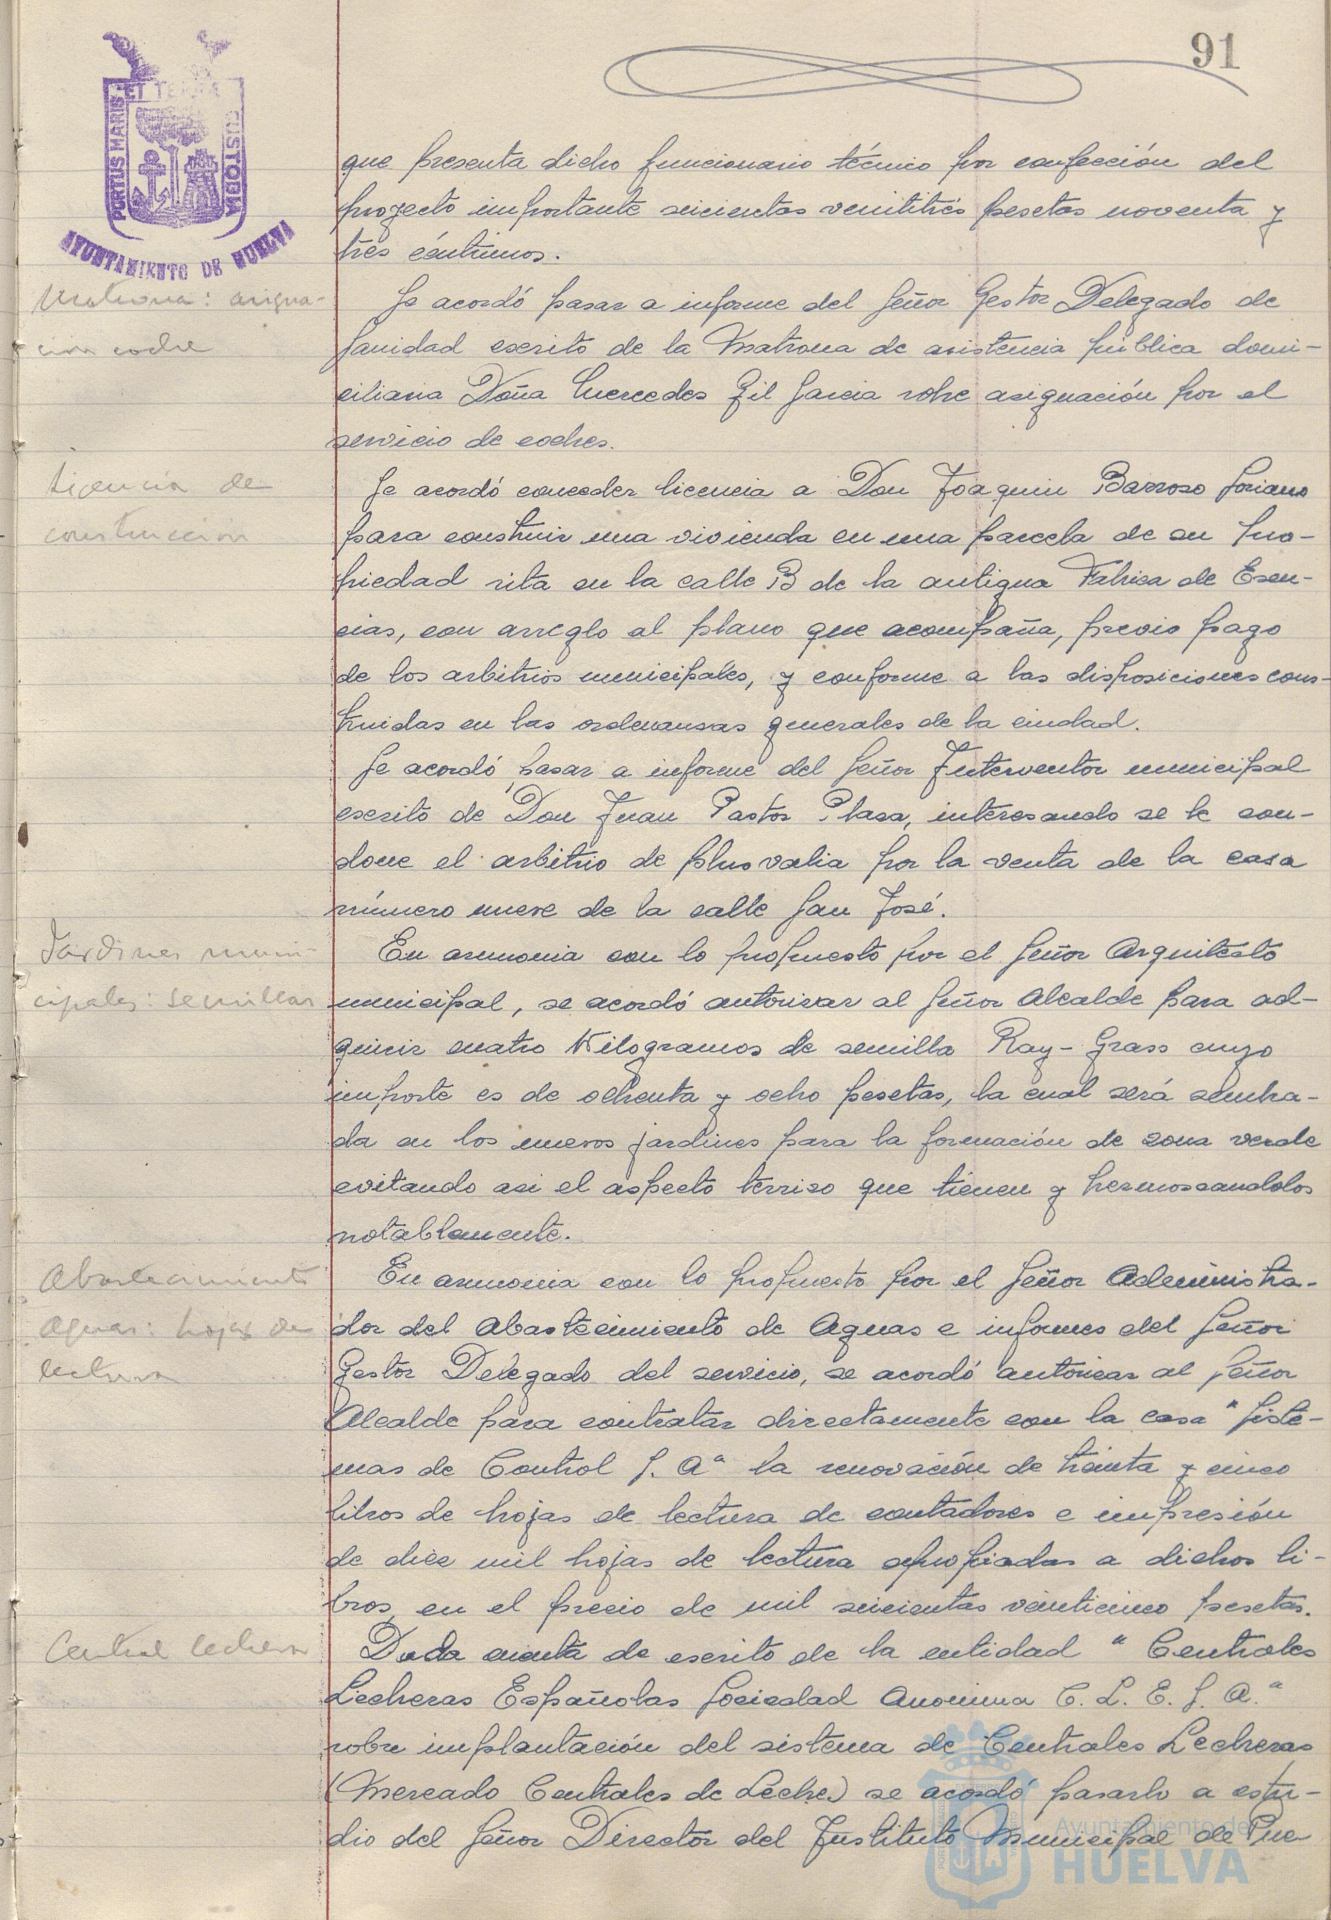 91
PORTUS MARIS ET TERRA CUSTODIA
AYUNTAMIENTO DE HUELVA
que presenta dicho funcionario técnico por confección del
proyecto importante seiscientas veintitrés pesetas noventa y
tres céntimos.
Matrona: asigna-
ción coche
Se acordó pasar a informe del Señor Gestor Delegado de
Sanidad escrito de la Matrona de asistencia pública domi-
ciliaria Doña Mercedes Gil Garcia sobre asignación por el
servicio de coches.
Licencia de
construcción
Se acordó conceder licencia a Don Joaquin Barroso Soriano
para construir una vivienda en una parcela de su pro-
piedad sita en la calle B de la antigua Fabrica de Esen-
cias, con arreglo al plano que acompaña, previo pago
de los arbitrios municipales, y conforme a las disposiciones cons-
truidas en las ordenansas generales de la ciudad.
Se acordó pasar a informe del Señor Interventor municipal
escrito de Don Juan Pastor Plasa, interesando se le con-
done el arbitrio de plus valia por la venta de la casa
número nueve de la calle San José.
Jardines muni-
cipales: semillas
En armonia con lo propuesto por el Señor Arquitecto
municipal, se acordó autorisar al Señor Alcalde para ad-
quirir cuatro Kilogramos de semilla Ray-Grass cuyo
importe es de ochenta y ocho pesetas, la cual será sembra-
da en los nuevos jardines para la formación de zona verde
evitando asi el aspecto terriso que tienen y hermoseandolos
notablemente.
Abastecimiento
Aguas: hojas de
lectura
En armonia con lo propuesto por el Señor Administra-
dor del Abastecimiento de Aguas e informes del Señor
Gestor Delegado del servicio, se acordó autorisar al Señor
Alcalde para contratar directamente con la casa "Siste-
mas de Control S. A" la renovación de treinta y cinco
libros de hojas de lectura de contadores e impresión
de diez mil hojas de lectura apropiadas a dichos li-
bros, en el precio de mil seiscientas veinticinco pesetas.
Central lechera
Dada cuenta de escrito de la entidad "Centrales
Lecheras Españolas Sociedad Anonima C. L. E. S. A."
sobre implantación del sistema de Centrales Lecheras
(Mercado Centrales de Leche) se acordó pasarlo a estu-
dio del Señor Director del Instituto Municipal de Pue
Ayuntamiento de
HUELVA